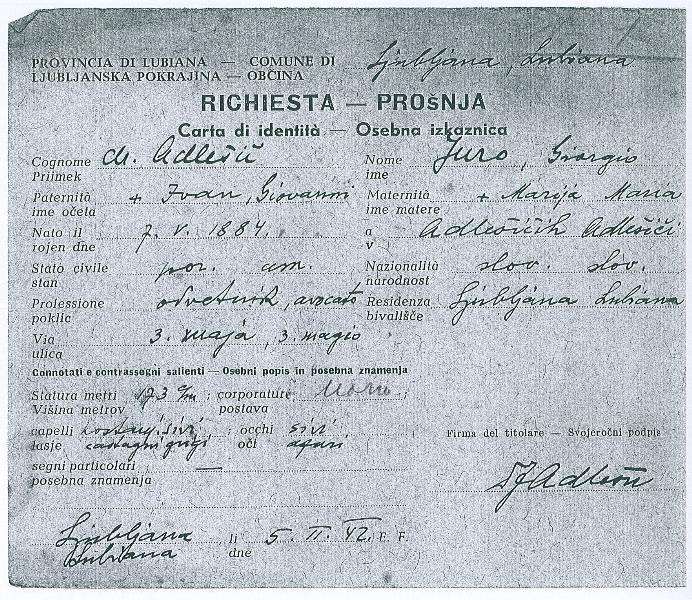 PROVINCIA DI LUBIANA — COMUNE DI Ljubljana, Lubiana
LJUBLJANSKA POKRAJINA — OBČINA
RICHIESTA — PROšNJA
Carta di identità — Osebna izkaznica
Cognome dr. Adlešič Nome Juro, Giorgio
Priimek ime
Paternità + Ivan, Giovanni Maternità + Marija Maria
ime očeta ime matere
Nato il 7. V. 1884. a Adlešičih Adlešiči
rojen dne v
Stato civile por. am. Nazionalità slov. slov.
stan narodnost
Professione odvetnik, avocato Residenza Ljubljana Lubiana
poklic bivališče
Via 3. maja, 3. magio
ulica
Connotati e contrassegni salienti — Osebni popis in posebna znamenja
Statura metri 173 c/m ; corporature
Višina metrov postava
capelli kostanj. sivi ; occhi sivi
lasje castagni grigi oči
segni particolari —
posebna znamenja
Firma del titolare — Svojeročni podpis
Adlešič
Ljubljana li 5. II. 42. E. F.
Lubiana dne